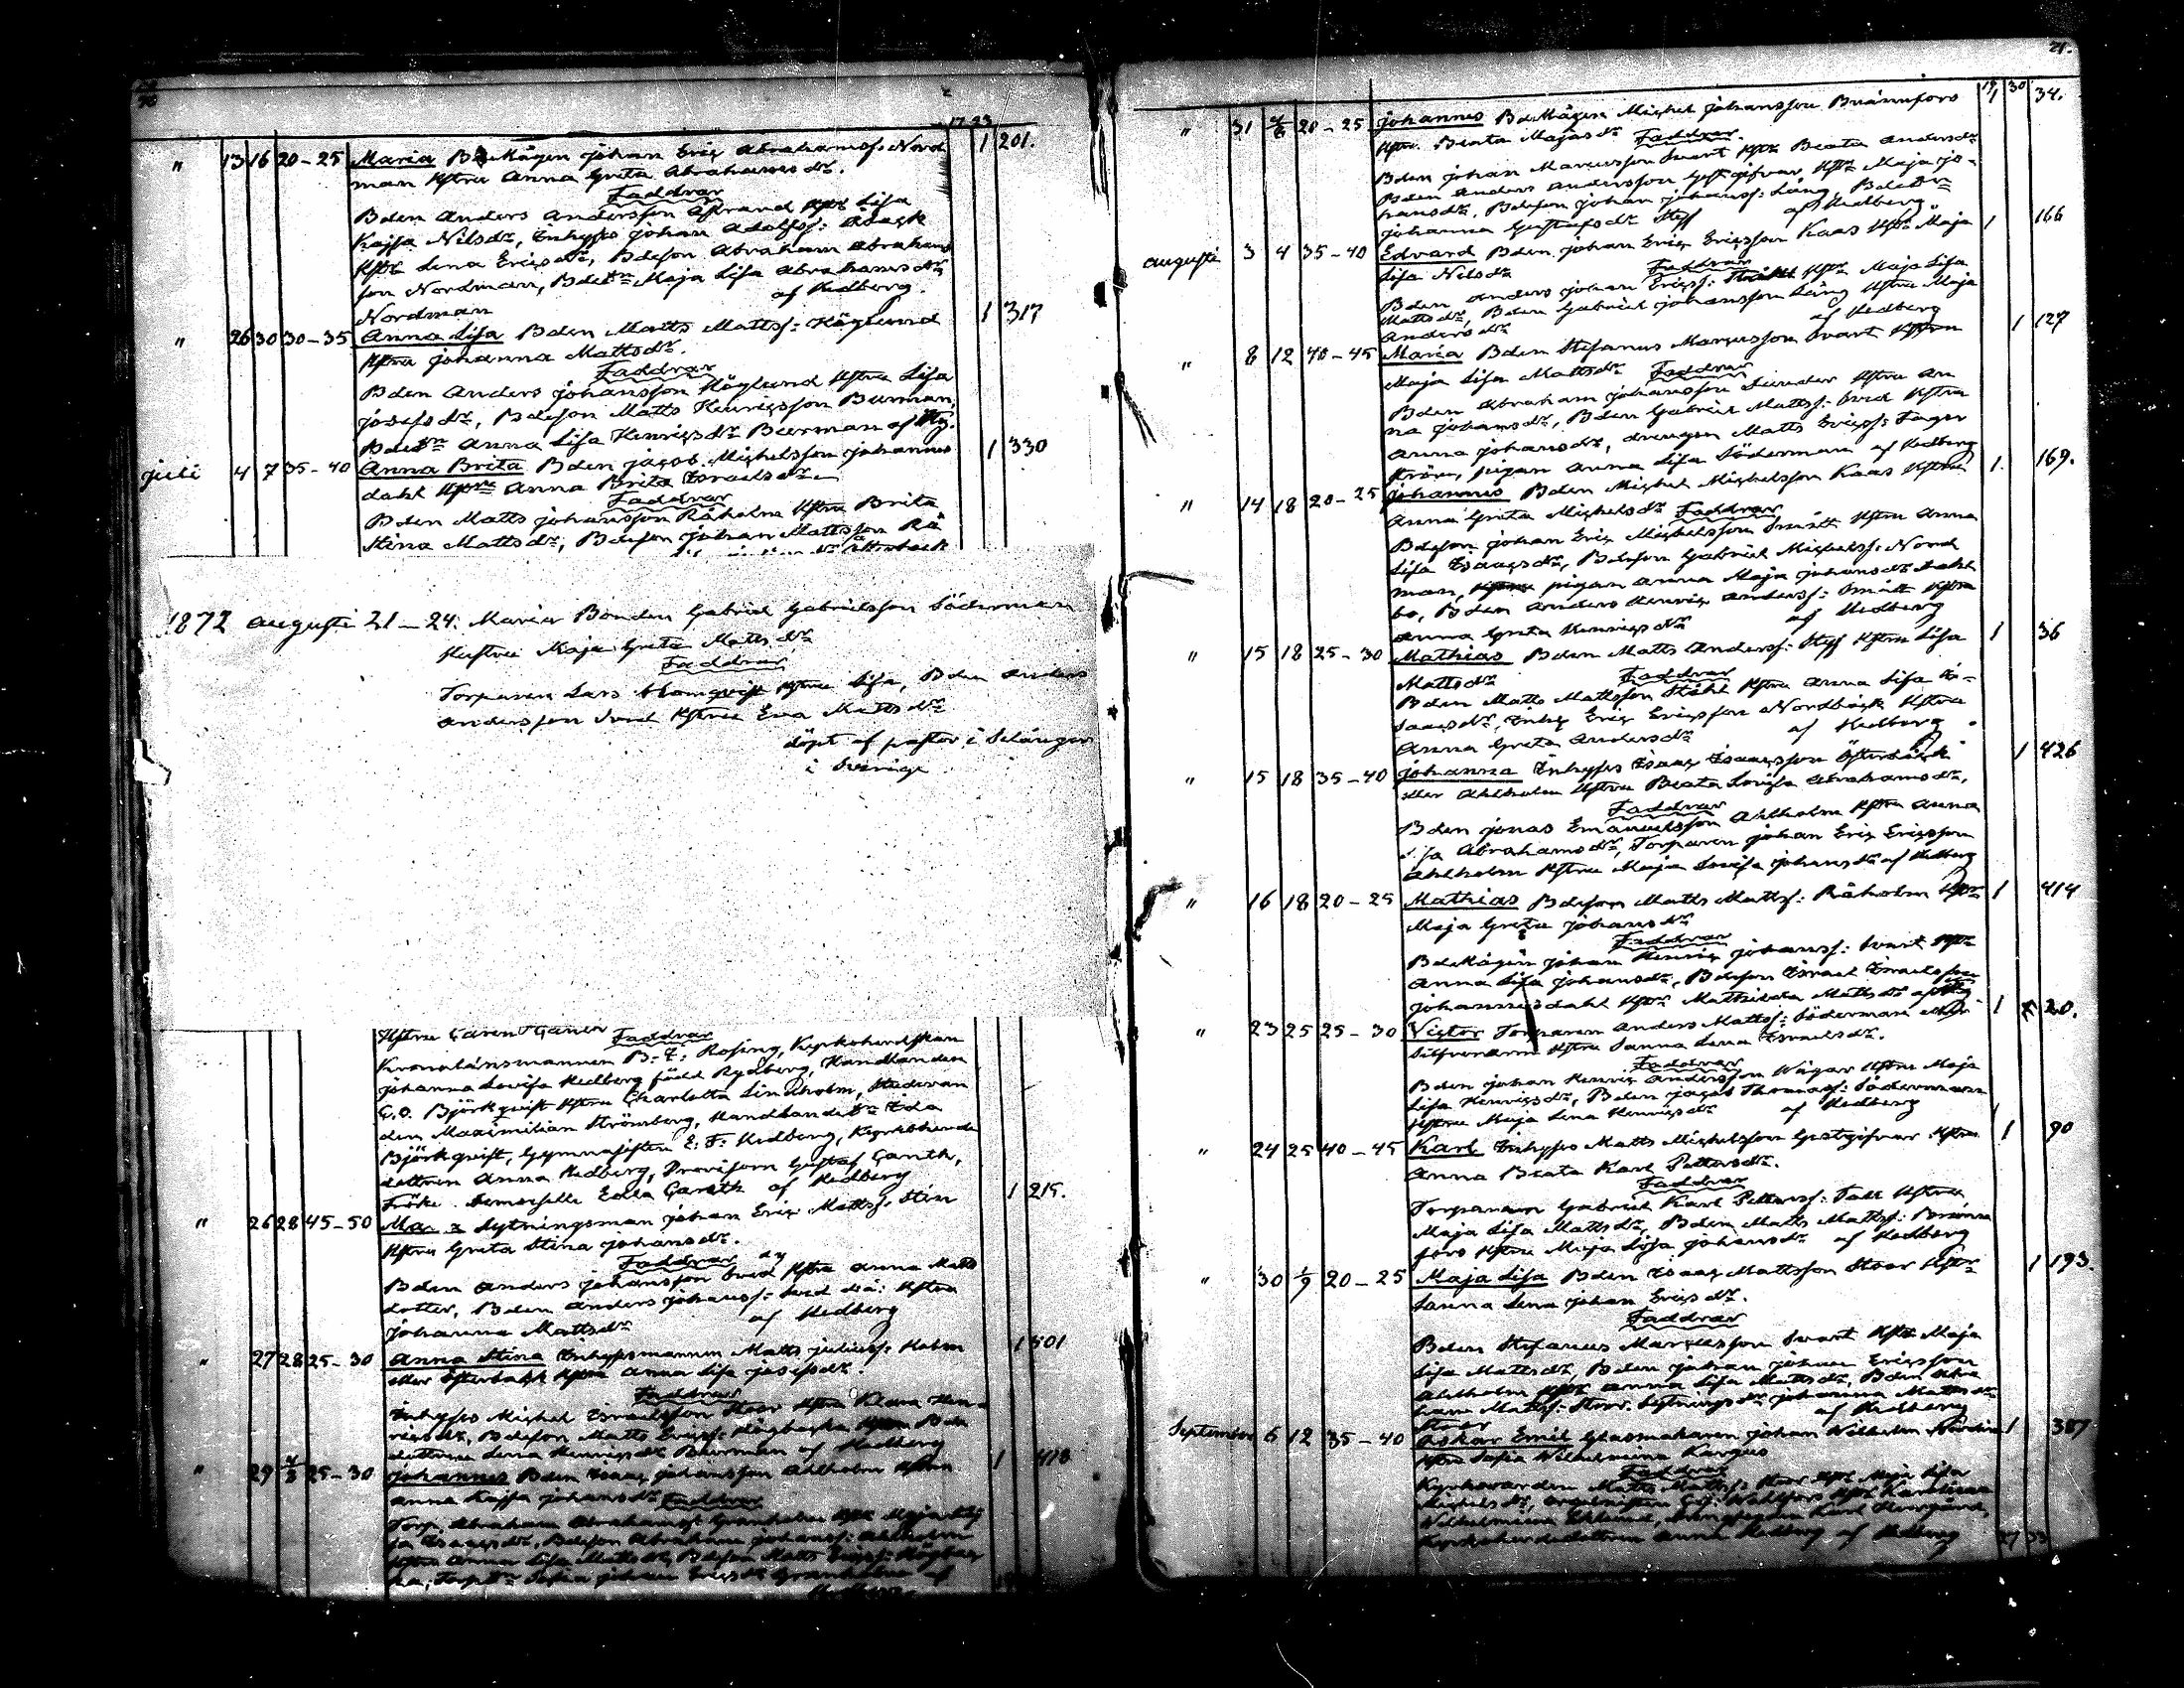 17 23
" 13 16 20-25 Maria BdeMågen Johan Eric Abrahamss: Nord 1 201.
man Hstru Anna Greta Abrahamsdr.
Faddrar
Bden Anders Andersson Hstr Lisa
Kajsa Nilsdr, Inhyses Johan Adolfss:
Hstr Lena Ericsdr, Bdeson Abraham Abrahams
son Nordman, Bdedtn Maja Lisa Abrahamsdr
Nordman af Hedberg.
" 26 30 30-35 Anna Lisa Bden Matts Mattss: Höglund 1 317
Hstru Johanna Mattsdr.
Faddrar
Bden Anders Johansson Höglund Hstru Lisa
Josefsdr, Bdeson Matts Henricsson Burman,
Bdedtn Anna Lisa Henricsdr Buurman af Hbg.
Juli 4 7 35-40 Anna Brita Bden Jacob Michelsson Johannes 1 330
dahl Hstru Anna Brita Israelsdr
Faddrar
Bden Matts Johansson Råholm Hstru Brita
Stina Mattsdr, Bdeson Johan Mattsson Rå
1872 Augusti 21-24. Maria Bonden Gabriel Gabrielsson Söderman
Hustru Maja Greta Mattsdr
Faddrar
Torparen Lars Hstru Lisa, Bden Anders
Andersson Svid Hstru Eva Mattsdr
döpt af pastor i Selånger
i Sverige
Hstru
Faddrar
Kronolänsmannen B. F. Rosing, Kyrkoherdskan
Johanna Lovisa Hedberg född Rydberg, Handlanden
C. O. Björkqvist Hstru Charlotta Lindholm, Studeran
den Maximilian Strömberg, Handlandedtn Ida
Björkqvist, Gymnasisten E. F. Hedberg, Kyrkoherde
dottren Anna Hedberg, Provisorn Gustaf Ganth,
Fröke Demoiselle Edla Ganth af Hedberg
" 26 28 45-50 Sytningsman Johan Eric Mattss. Stin 1 215.
Hstru Greta Stina Johansdr.
Faddrar
Bden Anders Johansson Svid Hstru Anna Matts
dotter, Bden Anders Johanss: Svid Hstru
Johanna Mattsdr af Hedberg
" 27 28 25-30 Anna Stina Inhysesmannen Matts Juliuss: Holm 1 501
eller Österback Hstru Anna Lisa Josefsdr.
Faddrar
Inhyses Michel Israelsson Stoor Hstru Klara Hen
ricsdr, Bdeson Matts Ericss: Högbacka Bde
dottren Lena Henricsdr Buurman af Hedberg
" 29 4/8 25-30 Johannes Bden Isaac Johansson Ahlholm Hstru 1 418
Anna Kajsa Johansdr Faddrar
Torp. Abraham Abrahamss: Granholm Hstr Maja Li
sa Isaacsdr, Bdeson Abraham Johanss: Ahlholm
Hstru Anna Lisa Mattsdr, Bdeson Matts Ericss: Högbac
ka, Torpdtn Sofia Johan Ericsdr Granholm af
Hedberg
21.
19 30
" 31 4/8 20-25 Johannes BdeMågen Michel Johansson Brännfors 1 34.
Hstru Beata Majasdr Faddrar
Bden Johan Marcusson Svart Hstr Beata Andersdr
Bden Anders Andersson Gestgifvar, Hstr Maja Jo-
hansdr, Bdeson Johan Johanss: Lång, Bdedtn
Johanna Gustafsdr Styf af Hedberg
Augusti 3 4 35-40 Edvard Bden Johan Eric Ericsson Kaas Hstr Maja 1 166
Lisa Nilsdr Faddrar
Bden Anders Johan Ericss: Hstr Maja Lisa
Mattsdr, Bden Gabriel Johansson Lång Hstru Maja
Andersdr af Hedberg
" 8 12 40-45 Maria Bden Stefanus Marcusson Svart Hstru 1 127
Maja Lisa Mattsdr Faddrar
Bden Abraham Johansson Sunder Hstru An
na Johansdr, Bden Gabriel Mattss: Svid Hstru
Anna Johansdr, Drengen Matts Ericss: Fager
ström, pigan Anna Lisa Söderman af Hedberg
" 14 18 20-25 Johannes Bden Michel Michelsson Kaas Hstru 1. 169.
Anna Greta Michelsdr Faddrar
Bdeson Johan Eric Michelsson Smått Hstru Anna
Lisa Isaacsdr, Bdeson Gabriel Michelss: Nord
man, Hstru pigan Anna Maja Johansdr Dahl
bo, Bden Anders Henric Anderss: Smått Hstru
Anna Greta Henricsdr af Hedberg
" 15 18 25-30 Mathias Bden Matts Anderss: Styf Hstru Lisa 1 36
Mattsdr Faddrar
Bden Matts Mattsson Ståhl Hstru Anna Lisa I-
saacsdr, Inhys Eric Ericsson Nordbäck Hstru
Anna Greta Andersdr af Hedberg.
" 15 18 35-40 Johanna Inhyses Isaac Isaacsson Österback 1 426
eller Ahlholm Hstru Beata Lovisa Abrahamsdr,
Faddrar
Bden Jonas Emanuelsson Ahlholm Hstru Anna
Lisa Abrahamsdr, Torparen Johan Eric Ericsson
Ahlholm Hstru Maja Lovisa Johansdr af Hedberg
" 16 18 20-25 Mathias Bdeson Matts Mattss: Råholm Hstr 1 414
Maja Greta Johansdr
Faddrar
BdeMågen Johan Henric Johanss: Svart Hstr
Anna Lisa Johansdr, Bdeson Israel Israelsson
Johannesdahl Hstr Mathilda Mattsdr af Hbg
" 23 25 25-30 Victor Torparen Anders Mattss: Söderman eller 1 20.
Silfverarm Hstru Sanna Lena Israelsdr.
Faddrar
Bden Johan Henric Andersson Wägar Hstru Maja
Lisa Henricsdr, Bden Jacob Thomass: Södermann
Hstru Maja Lena Henricsdr af Hedberg
" 24 25 40-45 Karl Inhyses Matts Michelsson Gestgifvar Hstru 1 90
Anna Beata Karl Pettersdr.
Faddrar
Torparen Gabriel Karl Petterss: Tall Hstru
Maja Lisa Mattsdr, Bden Matts Mattss: Bränn
fors Hstru Maja Lisa Johansdr af Hedberg
" 30 1/9 20-25 Maja Lisa Bden Isaac Mattsson Stoor Hstr 1 193.
Sanna Lena Johan Ericsdr.
Faddrar
Bden Stefanus Marcusson Svart Hstr Maja
Lisa Mattsdr, Bden Johan Johan Ericsson
Ahlholm Hstr Anna Lisa Mattsdr, Bden Abra
ham Mattss: Stoor. Sytningsdr Johanna Mattsdr
Stoor af Hedberg
September 6 12 35-40 Oskar Emil Glasmakaren Johan Wilhelm 1 387
Hstru Sofia Wilhelmina Kargus
Faddrar
Kyrkovärden Matts Mattss: Stoor Hstr Maja Lisa
Michelsdr, Hstr Karolina
Wilhelmina Eklund, Karl
Kyrkoherdedottren Anna Hedberg af Hedberg
27 33